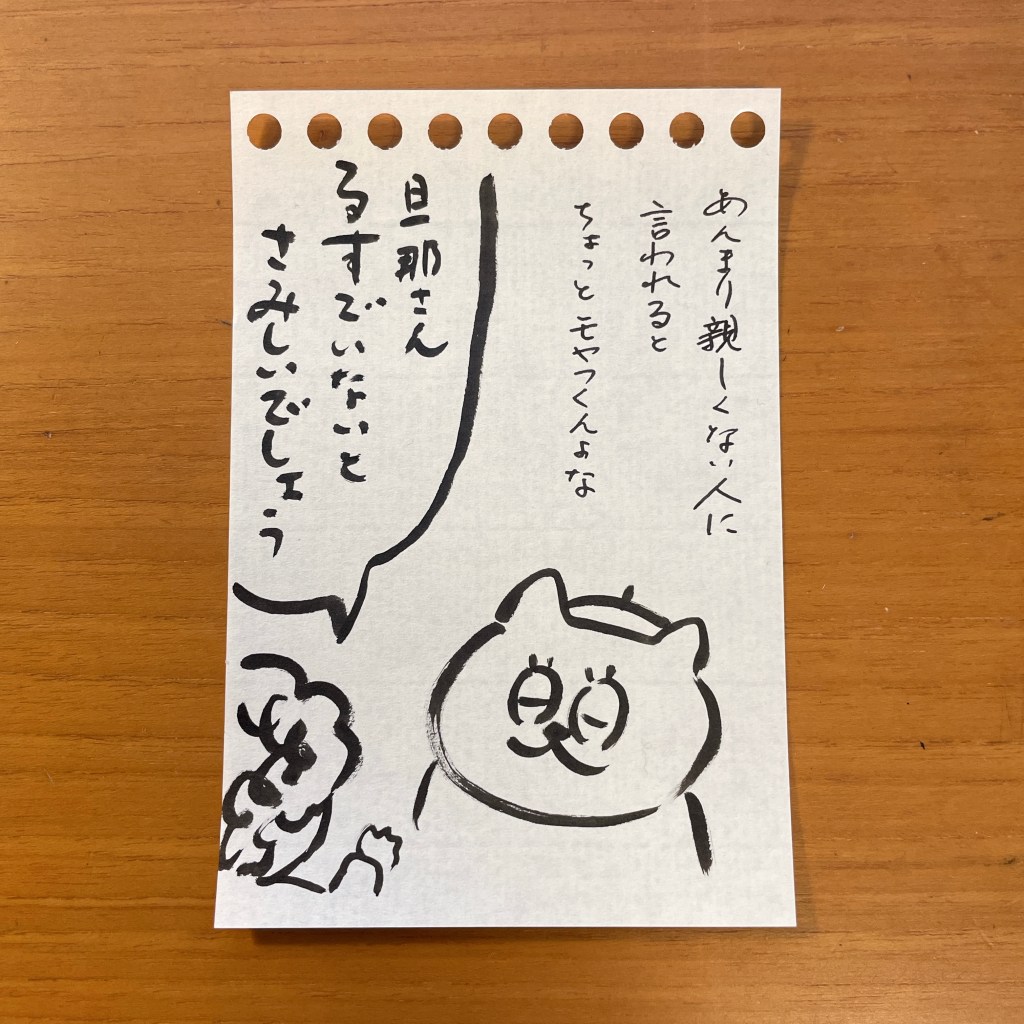 あんまり親しくない人に
言われると
ちょっとモヤつくんよな
旦那さん
るすでいないと
さみしいでしょう